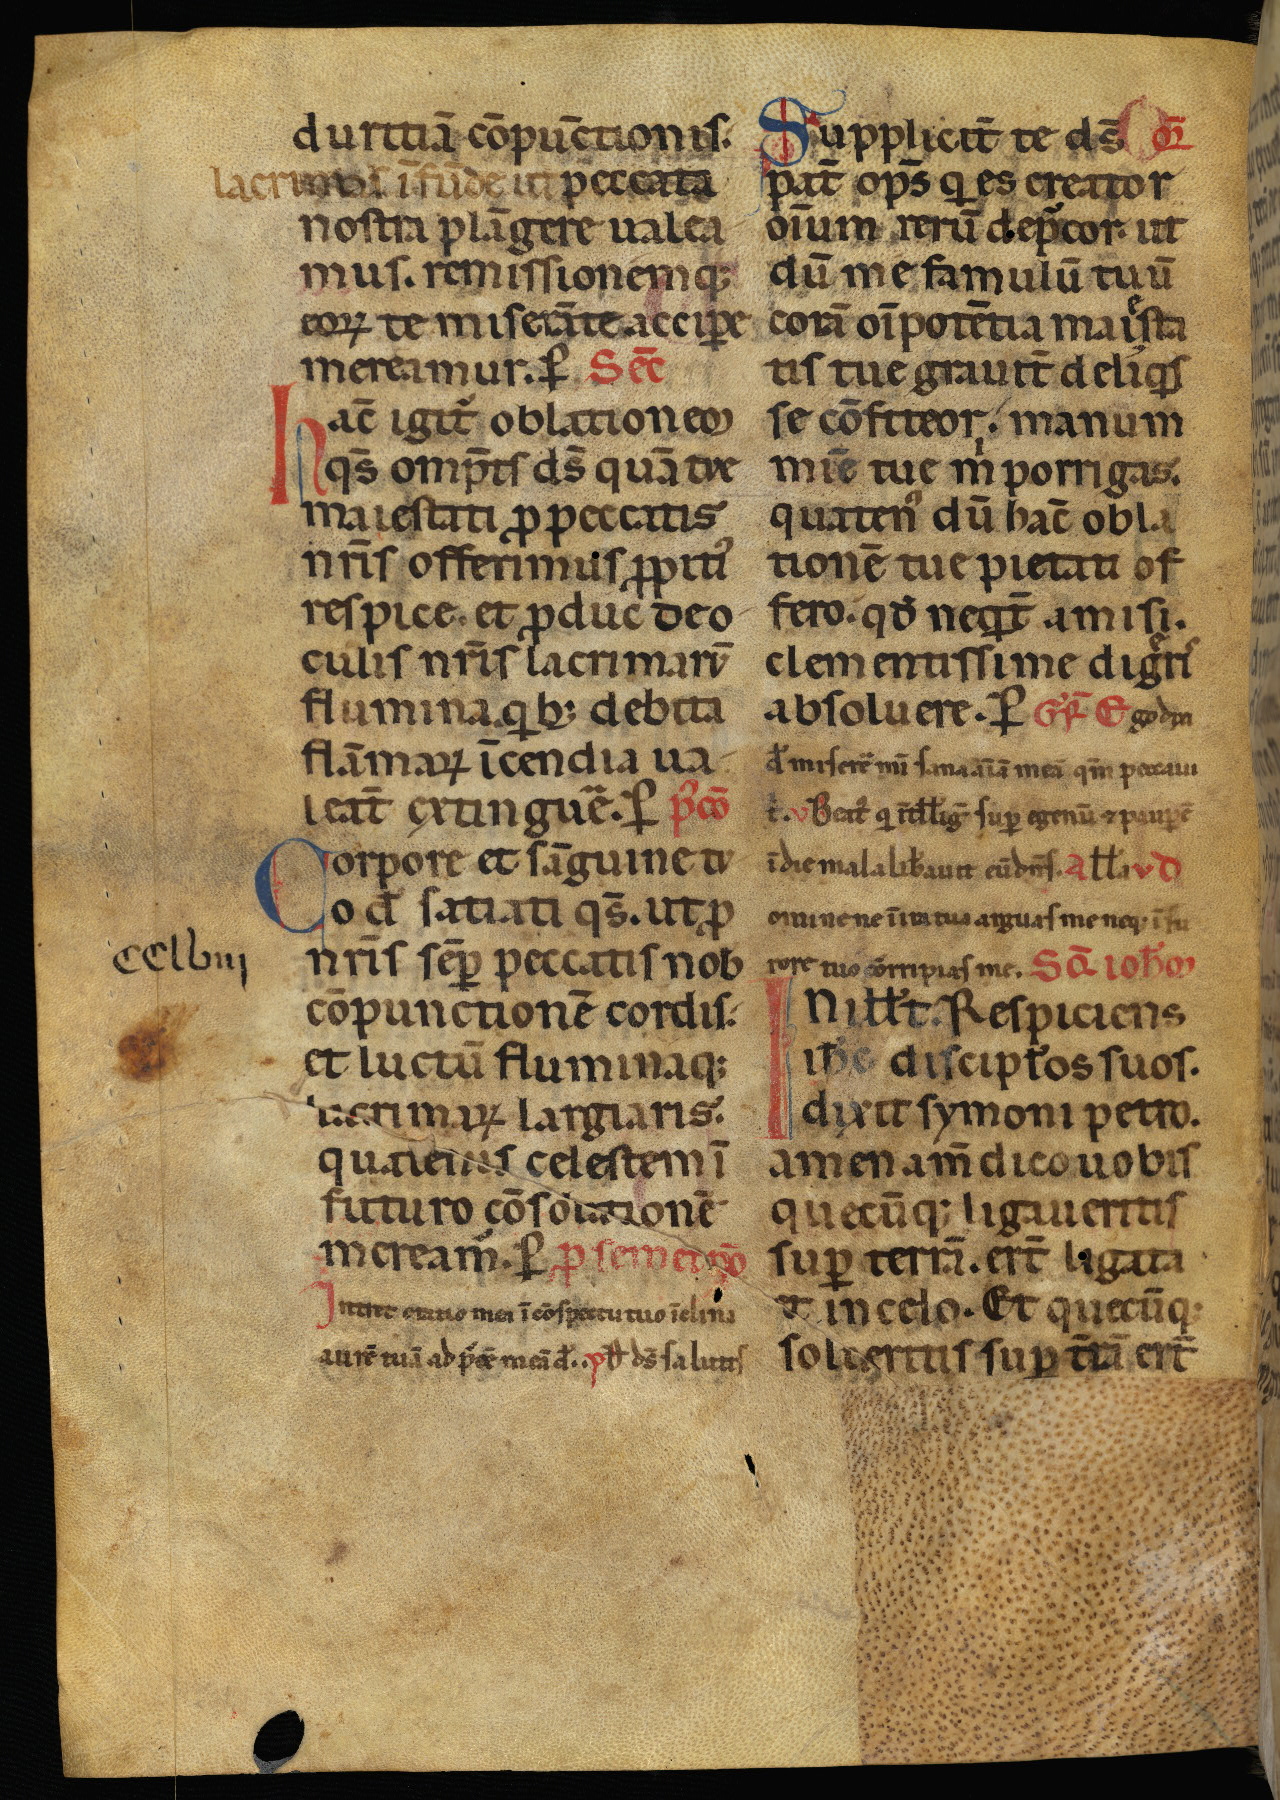 duritiā cōpūctionis.
lacrimas īfūde ut peccata
nostra plāgere ualea
mus. remissionemq;
eoꝝ te miserāte accipe
mereamur. ꝑ Sec̄
hac̄ igit̄ oblationem
qs̄ omp̄ts ds̄ quā tue
maiestati ꝓ peccatis
nr̄is offerimus ꝓpitiꝰ
respice. et ꝓduc de o
culis nr̄is lacrimarū
flumina. qib; debita
flāmaꝝ īcendia ua
leat̄ extinguē. ꝑ p̄cō
Corpore et sāguine tu
o d̄ satiati qs̄. ut ꝓ
nr̄is sēꝑ peccatis nob
CClviiij
cōpunctionē cordis.
et luctū fluminaq;
lacrimaꝝ largiaris.
quatenus celestem ī
futuro cōsolationē
mereamᷣ. ꝑ ꝑ semetip̄o
Intret oratio mea ī cōspectu tuo īclina
aurē tuā ad p̄cē meā d̄. ps̄ ds̄ salutis
Suppliciť te ds̄ Or̄
pat̄ op̄s qi es creator
oīum rerū dep̄cor. ut
dū me famulū tuū
corā oīpotētia maiesta
tis tue grauit̄ deliqis
se cōfiteor. manum
mīe tue m̄i porrigas.
quatenꝰ dū hac̄ obla
tionē tue pietati of
fero. qď neqit̄ amisi.
clementissime digẽris
absoluere. ꝑ Gr̄ Ego dixi
d̄ miserē mī sana aīam meā qm̄ peccaui
t. v Beatꝰ qi ītt̄liḡ suꝑ egenū ⁊ pauꝑē
ī die mala liƀauit eū dn̄s. Att̄a v D
omine ne ī ira tua arguas me neq; ī fu
rore tuo corripias me. Scd̄ ioħm
In itt̄t. Respiciens
iħc discipťos suos.
dixit symoni petro.
amen am̄ dico uobis
quecūq; ligaueritis
suꝑ terrā. ert̄ ligata
et in celo. Et quecūq;
solueritis suꝑ tr̄ā ert̄